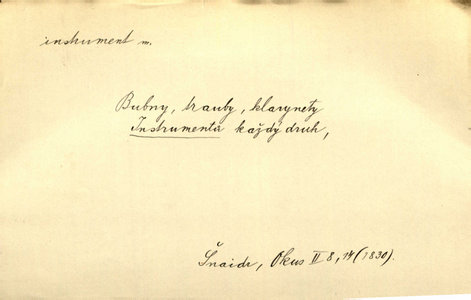 instrument m.
Bubny, trauby, klarynety
Instrumentů každý druh,
Šnaidr, Okus II 8, 14 (1830).